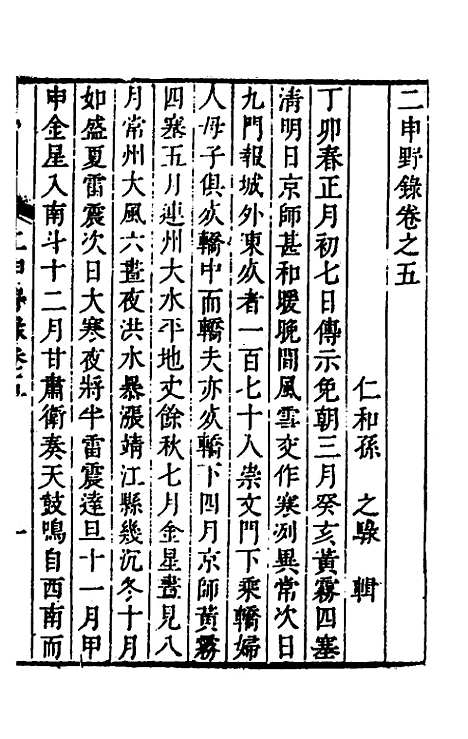 二申野錄卷之五
仁和孫 之騄 輯
丁卯春正月初七日傳示免朝三月癸亥黃霧四塞
清明日京師甚和暖晚間風雪交作寒冽異常次日
九門報城外凍死者一百七十人崇文門下乘轎婦
人母子俱死轎中而轎夫亦死轎下四月京師黃霧
四塞五月連州大水平地丈餘秋七月金星晝見八
月常州大風六晝夜洪水暴漲靖江縣幾沉冬十月
如盛夏雷震次日大寒夜將半雷震達旦十一月甲
申金星入南斗十二月甘肅衛奏天鼓鳴自西南而
二申野錄卷五
一